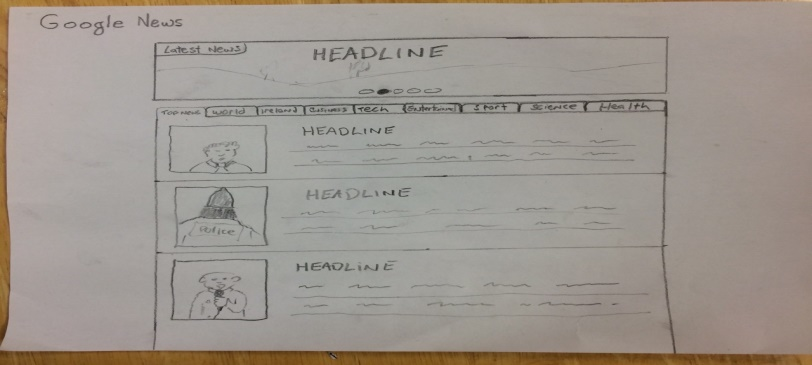 Google News
Latest News
HEADLINE
Top News World Ireland Business Tech Entertainment Sport Science Health
HEADLINE
HEADLINE
Police
HEADLINE